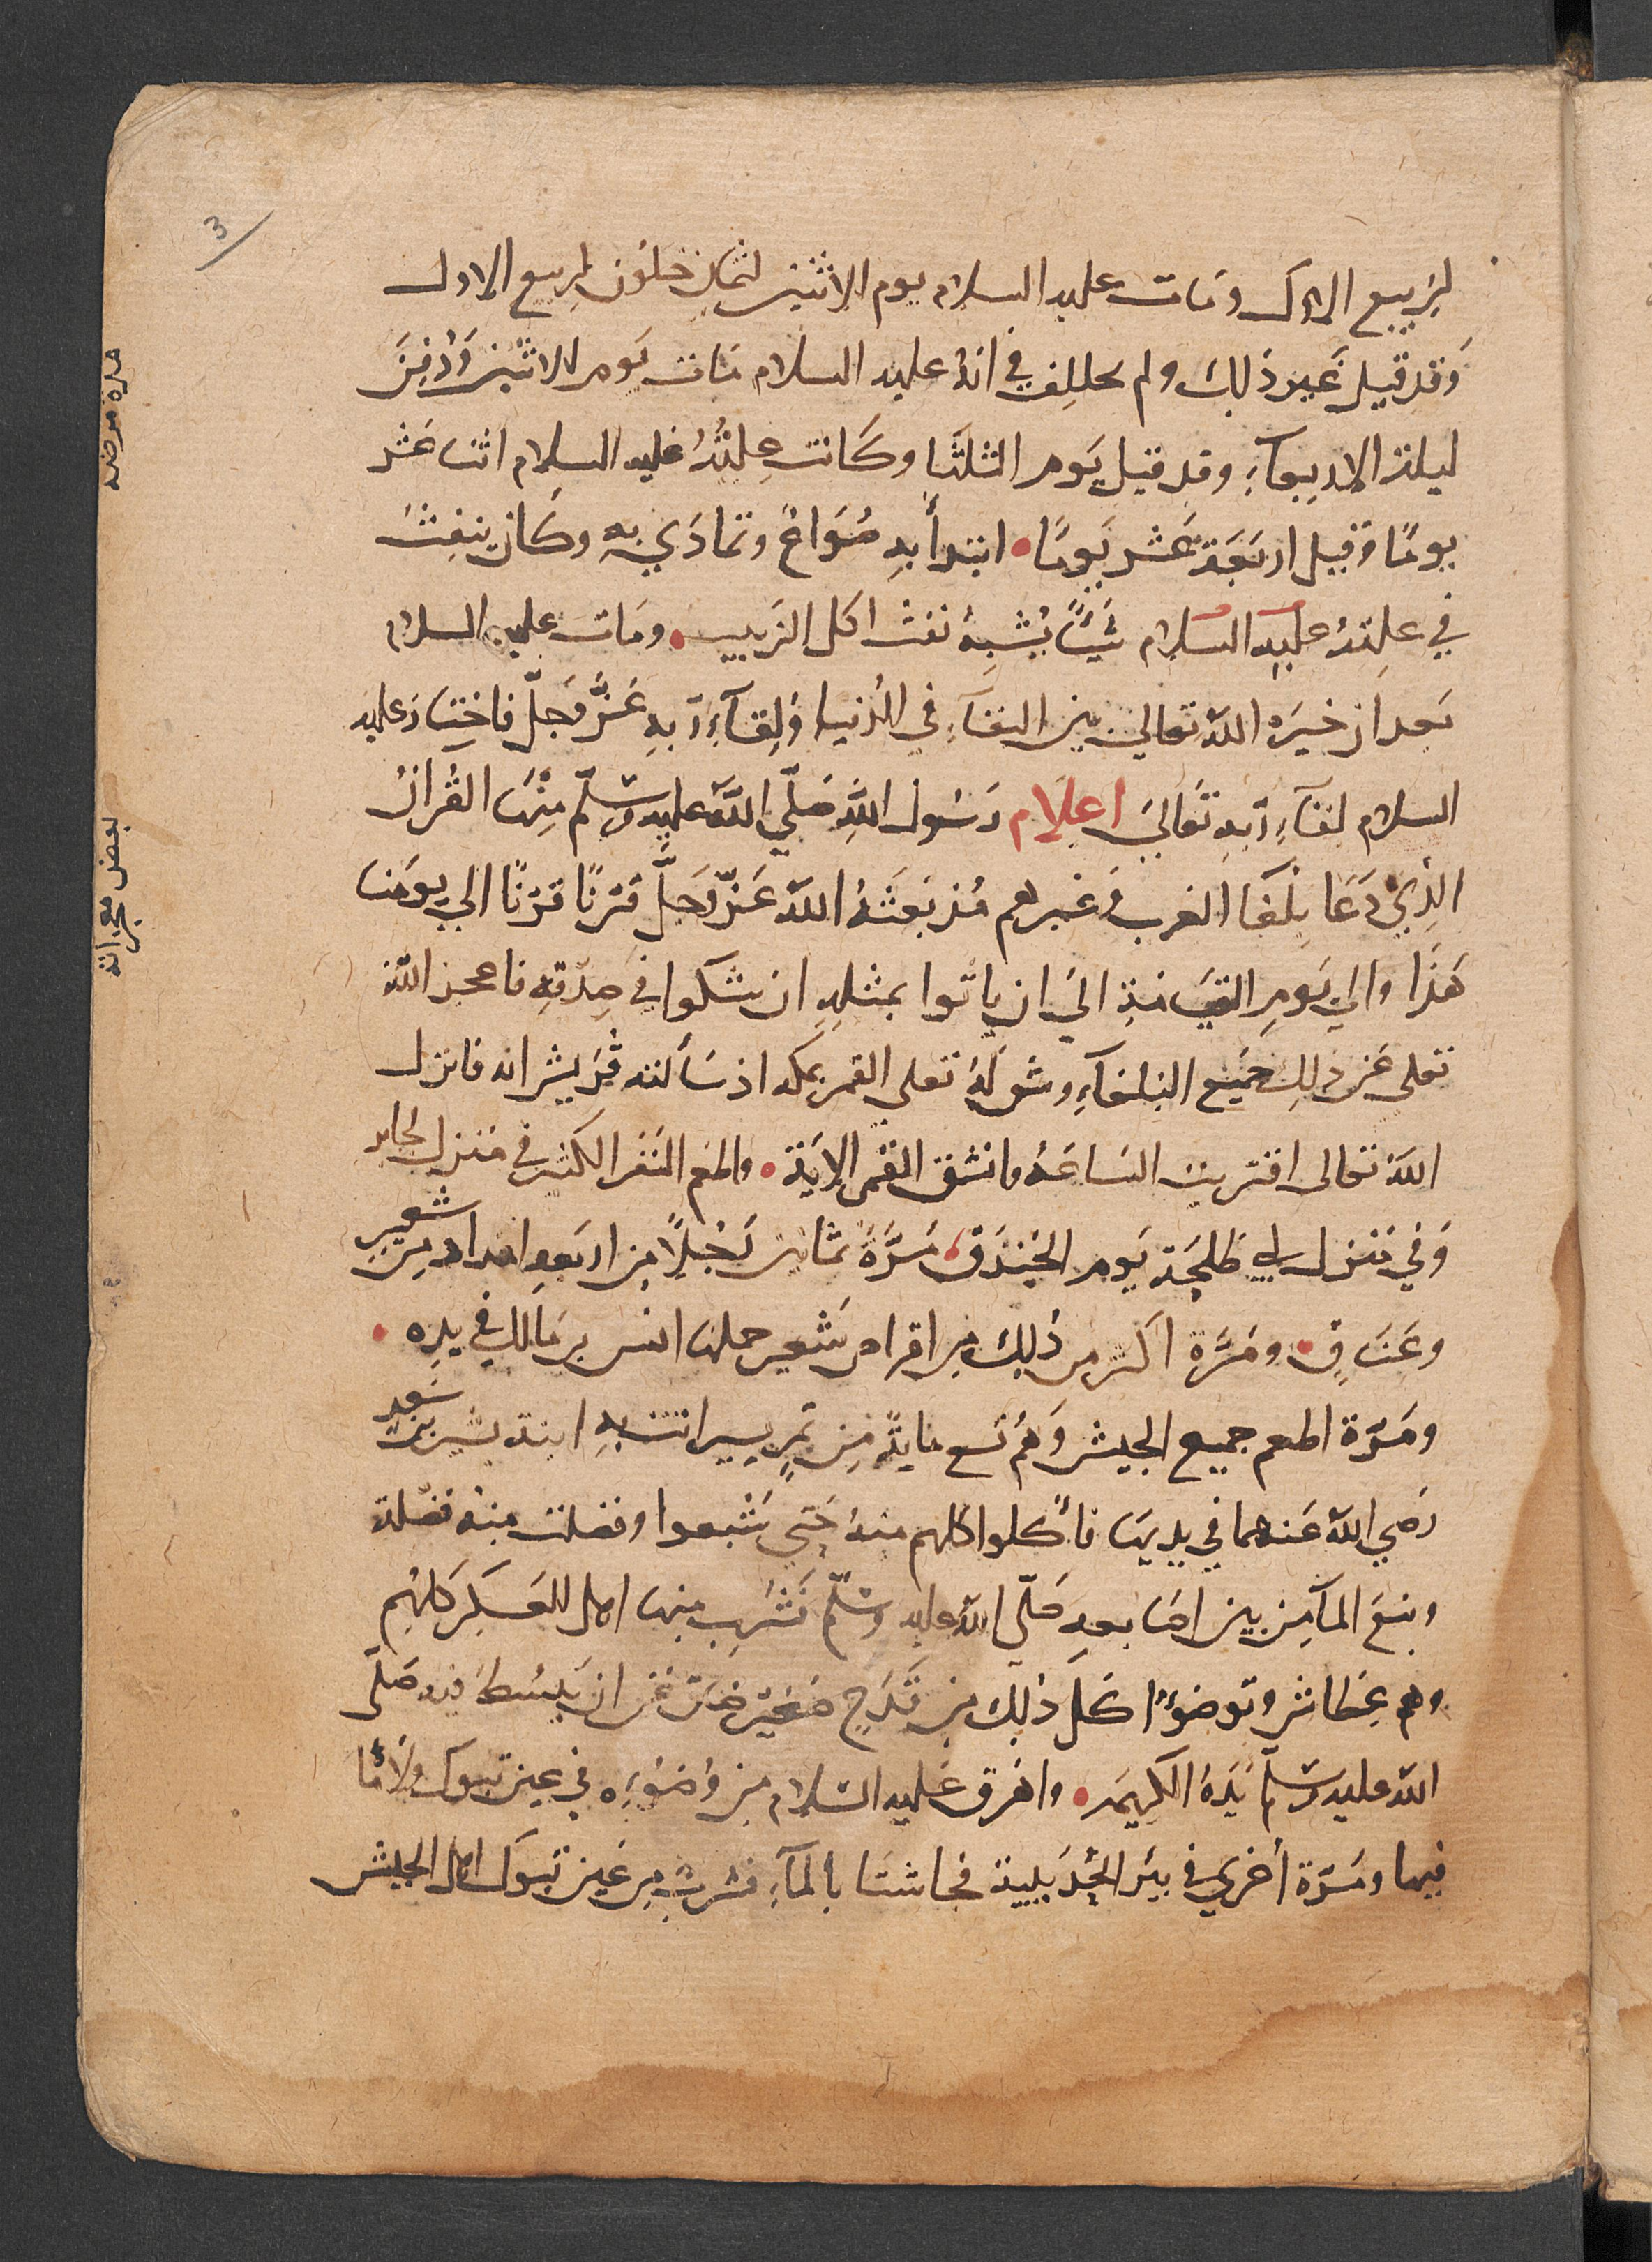 3
لربيع الاول ومات عليه السلام يوم الاثنين لثمان خلون لربيع الاول
وَقد قيل غَير ذَلِك ولم يختلف في انهُ عليه السلام مَات يَوم الاثنين وَدُفِنَ
ليلة الاربعآءِ وقد قيل يَوم الثلثَا وكَانت عِلتُهُ عَليه السلام اثنا عَشر
يومًا وَقيل اربَعَة عَشَر يَومًا • ابتدأ بهِ صُدَاعٌ وتمادَي بهِ وكَان ينفِثُ
في عِلتهُ عَليه السلام شَيًا يُشبِهُ نفث اكل الزبيب • ومَات عليه السلام
بَعد ان خيرَه اللهُ تعَالى بين البقآءِ في الدُنيا وَلِقآءِ رَبهِ عَزَّ وَجَلّ فاختَار عليه
السلام لقآءِ رَبهِ تَعَاليَ اعلَام رَسُول اللهِ صَلّي اللهُ عليهِ وسَلّم مِنهَا القُرانُ
الذِي دَعَا بلغَا العَرب وَغيرهم مُذ بَعَثَهُ الله عَزّ وَجَلَّ قَرنًا قَرنًا الي يومنَا
هَذَا والي يَومِ القيَامَةِ اليَ ان ياتوا بمثلهِ ان شكوا في صِدقِهِ فاعجز اللهُ
تعلى عَن ذلِك جَميع البلغآءِ وشق لهُ تعلى القمر بمكه اذ سَألته قُرَيش ايه فانزل
اللهُ تعالى اقتربت السَاعَهُ وانشق القَمر الايَة • واطعم النَفَر الكثير في مَنزل جابر
وَفي مَنزل ابي طَلحَة يَوم الخَندَق • مَرَّةً ثمانين رَجُلاً من اربَعهِ امداد من شعيرٍ
وعَنَاقٍ • ومَرَّة اكثر من ذلِك من اقراص شَعير حملهَا انس بن مَالك في يدِه •
ومَرَّة اطعم جميع الجيش وَهُم تسع مايةً مِن تمرٍ يسير اتت بهِ ابنة بشير بن سَعدٍ
رَضي اللهُ عَنهما في يديهَا فأكلوا كلهم منهُ حَتي شَبعوا وفضلت منه فضلة
ونبعَ المآ مِن بين اصَابعهِ صَلّي اللهُ عليه وسَلّم فَشرب منها اهل العَسكَر كلهُم
وهم عِطاش وتوضؤا كل ذلِك من قَدَحٍ صَغير ضاق عَن ان يَبسُط فيه صَلّى
اللهُ عليه وسَلّم يَدَهُ الكريمَه • واهرق عَليه السَلام من وُضُوءِه في عين تبوك ولا مَا
فيها ومَرّة أُخري في بير الحُدَيبية فجاشتَا بالمآءِ فشربَ مِن عَين تبوك اهل الجيش
مدة مرضه
بعض معجزاته